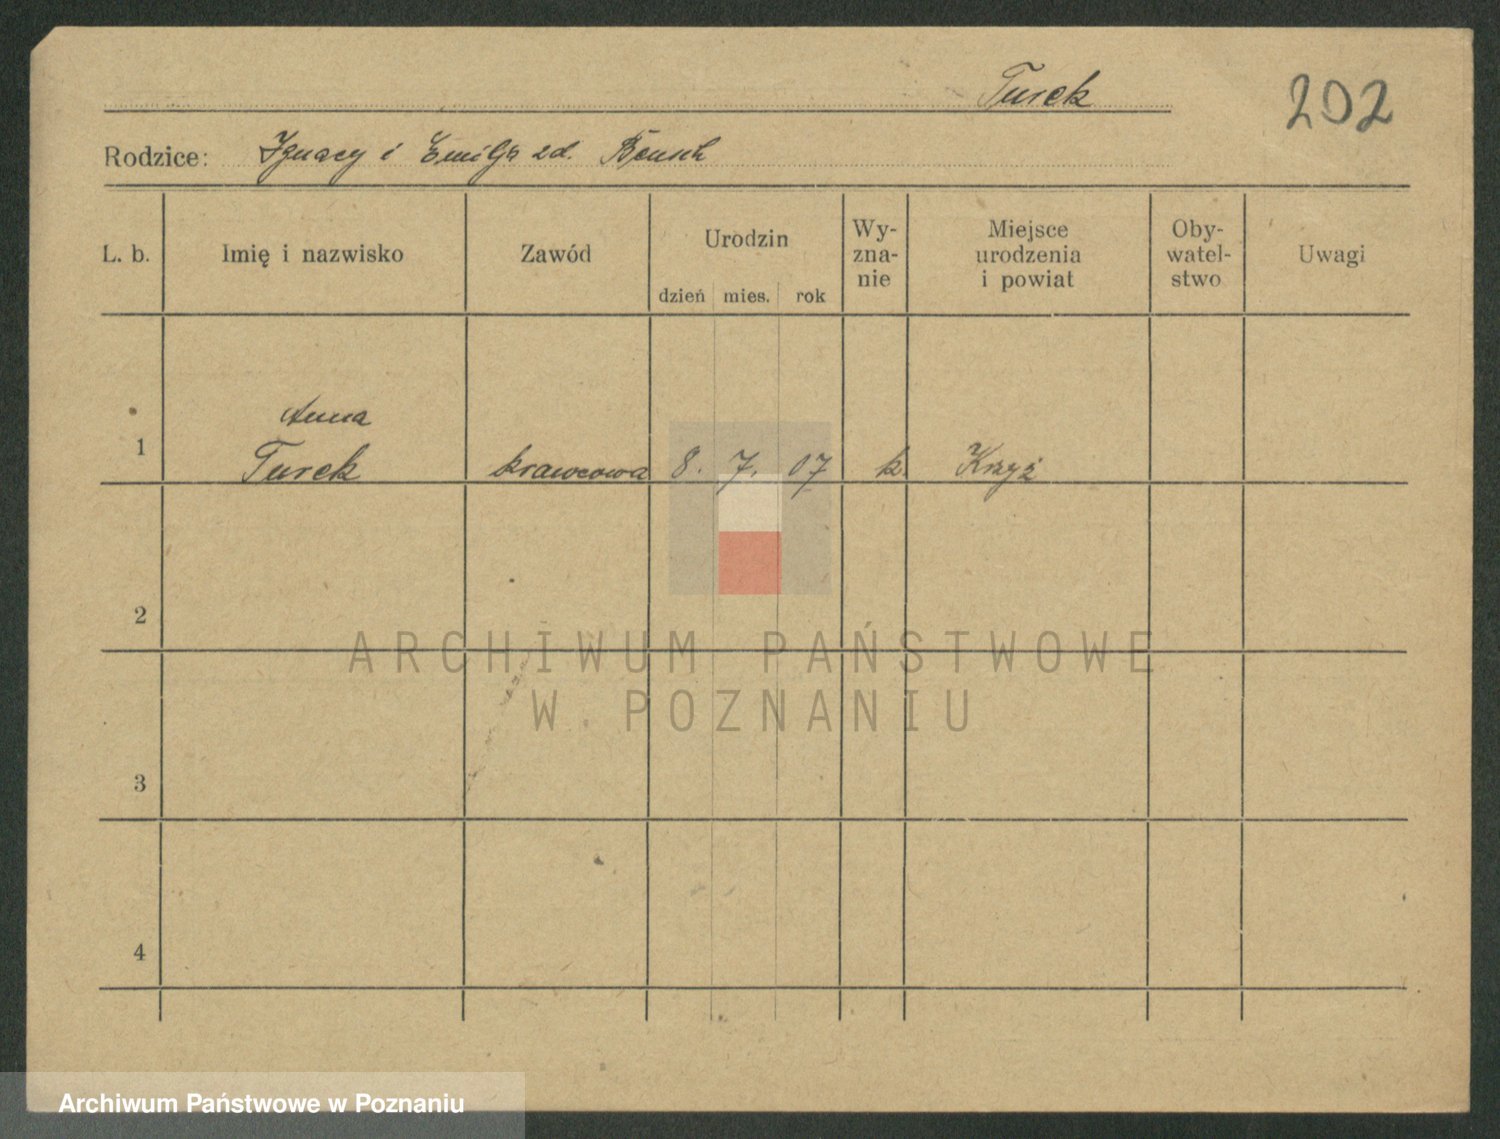 Turek
202
Rodzice: Ignacy i Emilja zd. Bensch
L. b. Imię i nazwisko Zawód Urodzin dzień mies. rok Wy-zna-nie Miejsce urodzenia i powiat Oby-watel-stwo Uwagi
Anna
1 Turek krawcowa 8. 7. 07 k Krzyż
2
ARCHIWUM PAŃSTWOWE
W POZNANIU
3
4
Archiwum Państwowe w Poznaniu